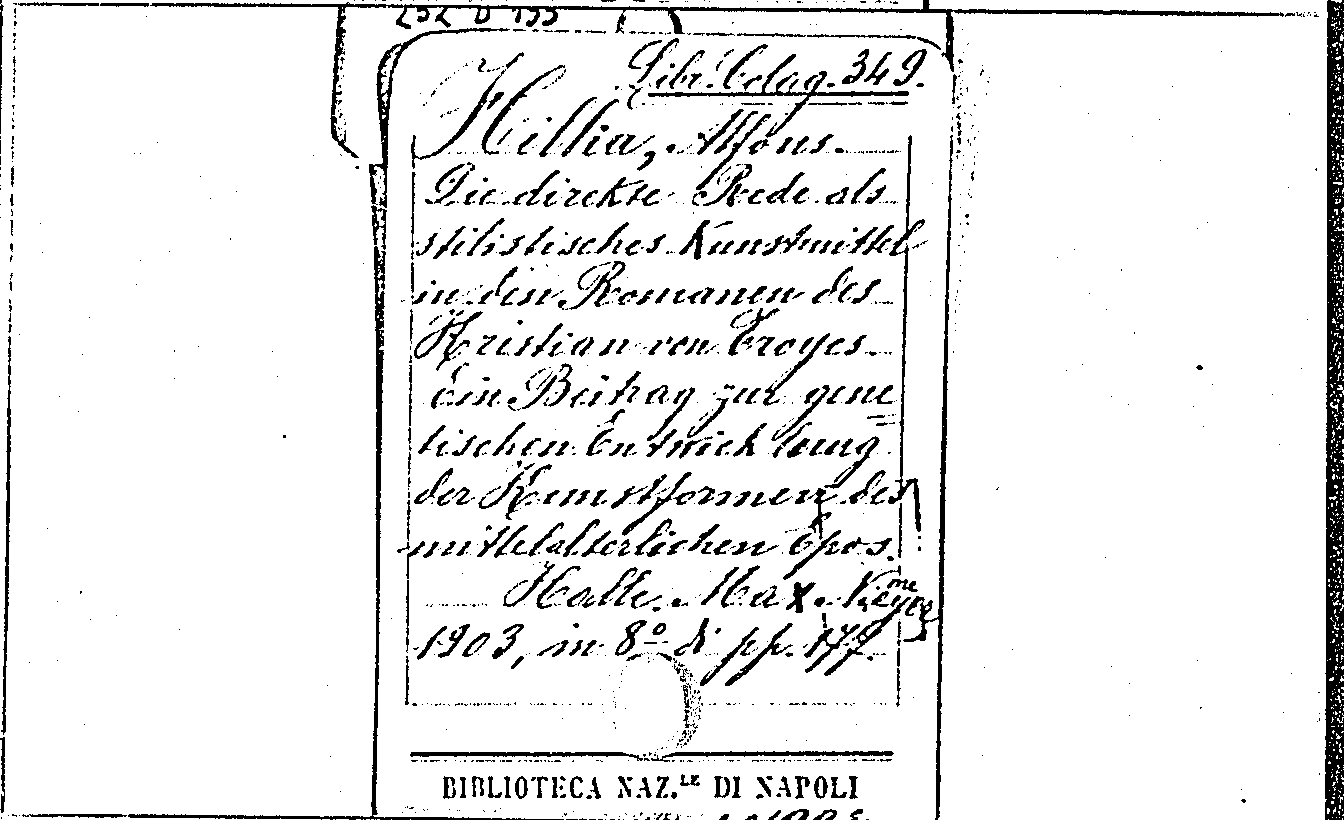 Libr. Colag. 349.
Hilka, Alfons.
Die direkte Rede als
stilistisches Kunstmittel
in den Romanen des
Kristian von Troyes
Ein Beitrag zur gene
tischen Entwicklung
der Kunstformen des
mittelalterlichen Epos.
Halle. Max. Niemeyer
1903, in 8º di pp. 177.
BIBLIOTECA NAZ.LE DI NAPOLI